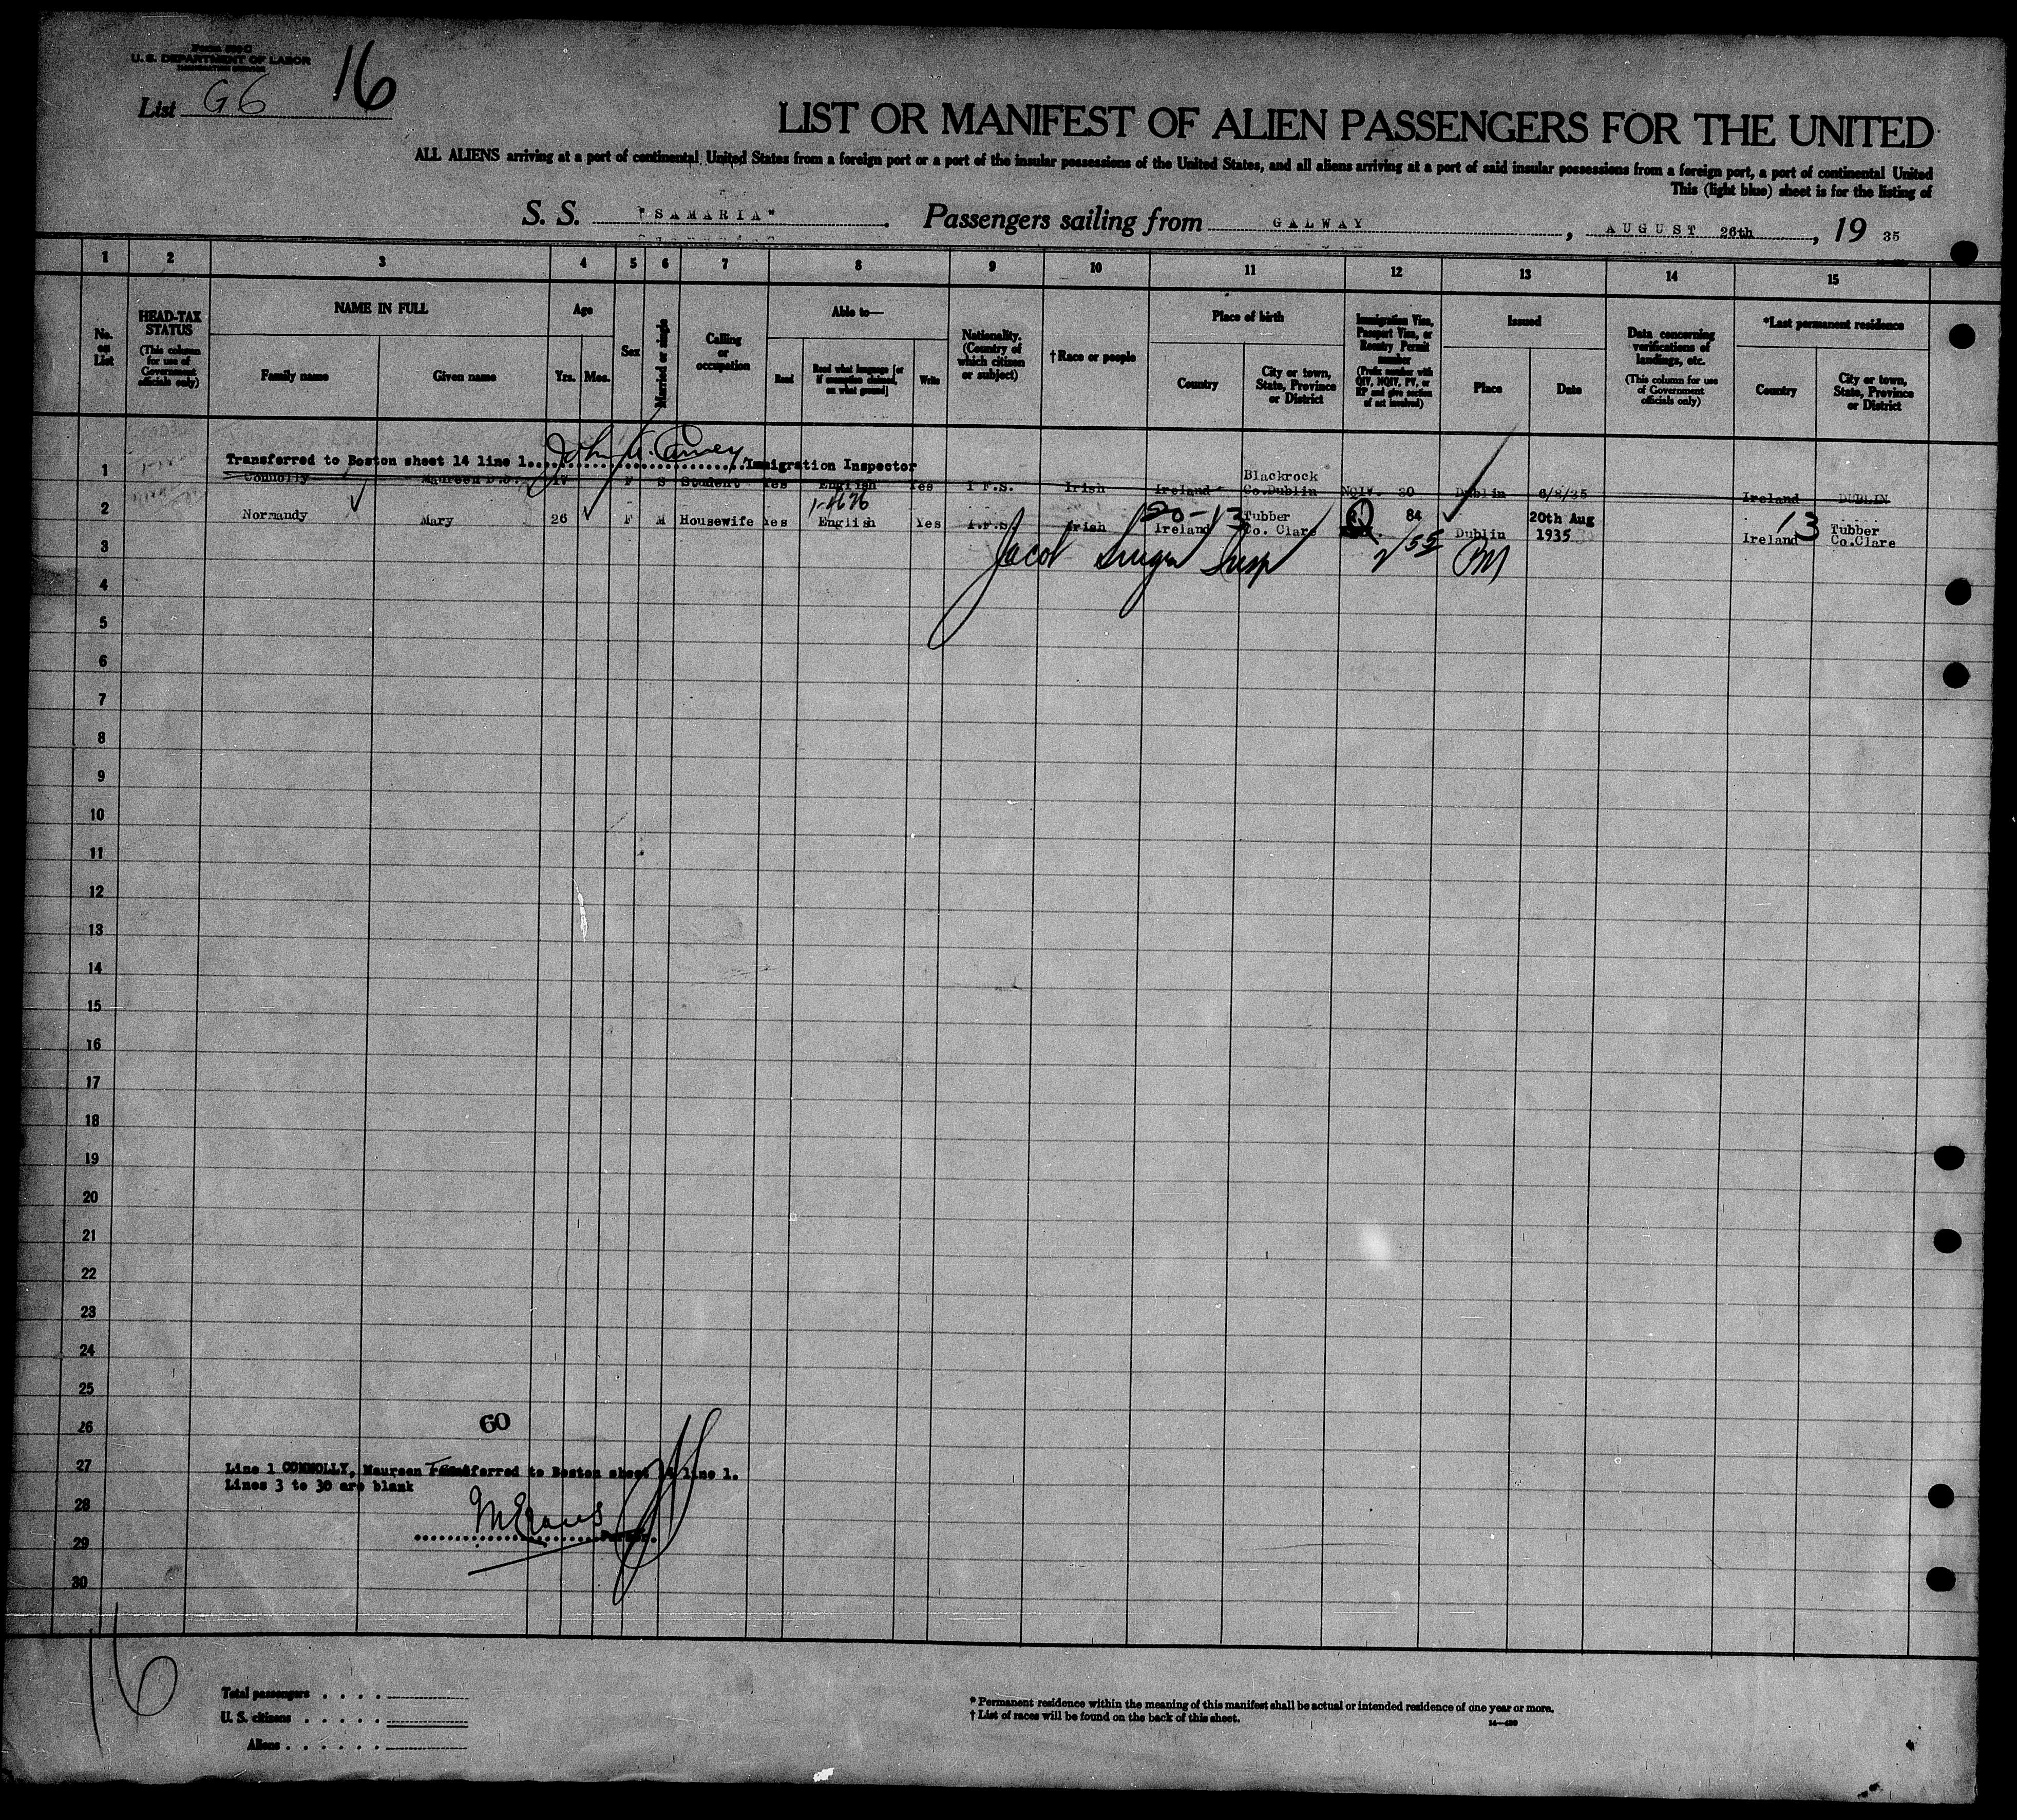 Form 500 G
U. S. DEPARTMENT OF LABOR
IMMIGRATION SERVICE
List G6 16
LIST OR MANIFEST OF ALIEN PASSENGERS FOR THE UNITED
ALL ALIENS arriving at a port of continental United States from a foreign port or a port of the insular possessions of the United States, and all aliens arriving at a port of said insular possessions from a foreign port, a port of continental United
This (light blue) sheet is for the listing of
S. S. "SAMARIA". Passengers sailing from GALWAY, AUGUST 26th, 19 35
1 2 3 4 5 6 7 8 9 10 11 12 13 14 15
No. on List
HEAD-TAX STATUS
(This column for use of Government officials only)
NAME IN FULL
Family name
Given name
Age
Yrs. Mos.
Sex
Married or single
Calling or occupation
Able to—
Read
Read what language [or if exemption claimed, on what ground]
Write
Nationality. (Country of which citizen or subject)
†Race or people
Place of birth
Country
City or town, State, Province or District
Immigration Visa, Passport Visa, or Reentry Permit number
(Prefix number with QIV, NQIV, PV, or RP and give section of act involved)
Issued
Place
Date
Data concerning verifications of landings, etc.
(This column for use of Government officials only)
*Last permanent residence
Country
City or town, State, Province or District
Transferred to Boston sheet 14 line 1. John A. Carney Immigration Inspector
1 Connolly Maureen F S Student Yes English Yes I F.S. Irish Ireland Blackrock Co.Dublin NQIV. 30 Dublin 6/8/35 Ireland DUBLIN
2 Normandy Mary 26 F M Housewife Yes English Yes I.F.S. Irish Ireland Tubber Co. Clare 84 Dublin 20th Aug 1935 Ireland Tubber Co.Clare
20-13
13
Jacob Insp
3
4
5
6
7
8
9
10
11
12
13
14
15
16
17
18
19
20
21
22
23
24
25
26
60
27
Line 1 CONNOLLY, Maureen Transferred to Boston sheet 14 line 1.
Lines 3 to 30 are blank
28
M Evans
29
30
16
Total passengers . . . .
U. S. citizens . . . . .
Aliens . . . . . .
* Permanent residence within the meaning of this manifest shall be actual or intended residence of one year or more.
† List of races will be found on the back of this sheet.
14—480